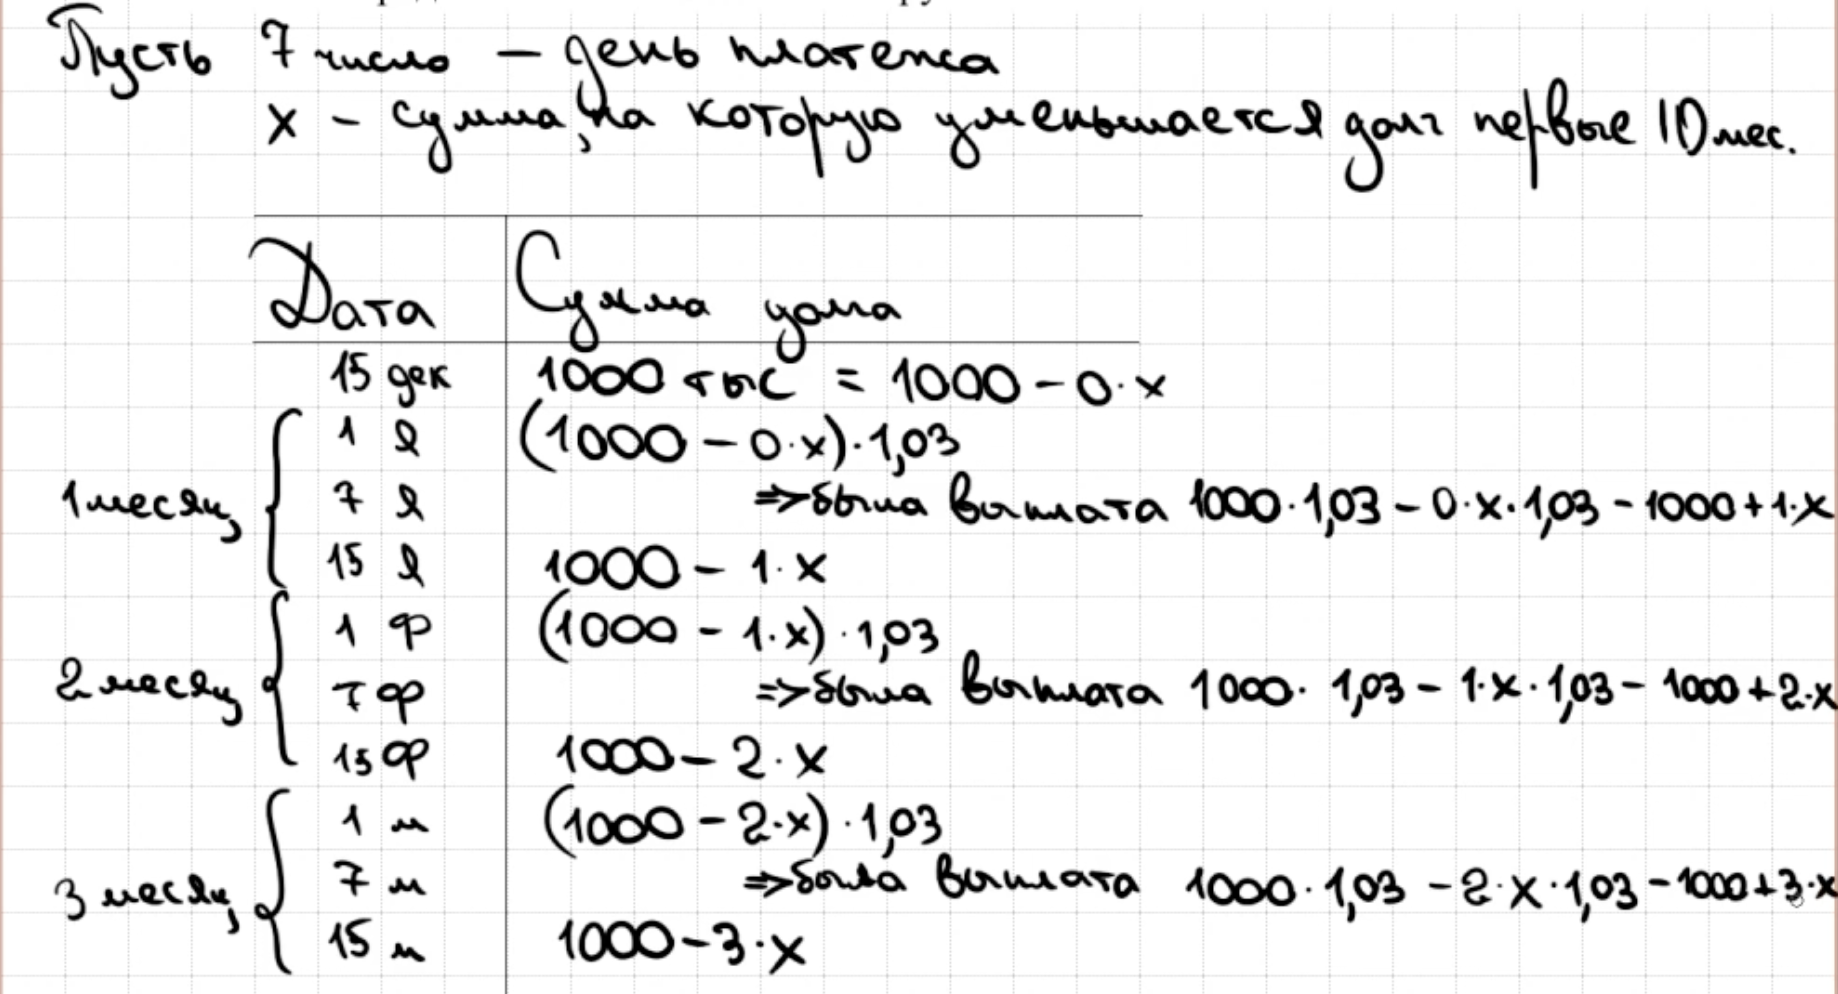 Пусть 7 число – день платежа
x – сумма, на которую уменьшается долг первые 10 мес.
Дата Сумма долга
15 дек 1000 тыс = 1000 – 0·x
1 я (1000 – 0·x)·1,03
1 месяц 7 я => была выплата 1000·1,03 – 0·x·1,03 – 1000 + 1·x
15 я 1000 – 1·x
1 ф (1000 – 1·x)·1,03
2 месяц 7 ф => была выплата 1000·1,03 – 1·x·1,03 – 1000 + 2·x
15 ф 1000 – 2·x
1 м (1000 – 2·x)·1,03
3 месяц 7 м => была выплата 1000·1,03 – 2·x·1,03 – 1000 + 3·x
15 м 1000 – 3·x